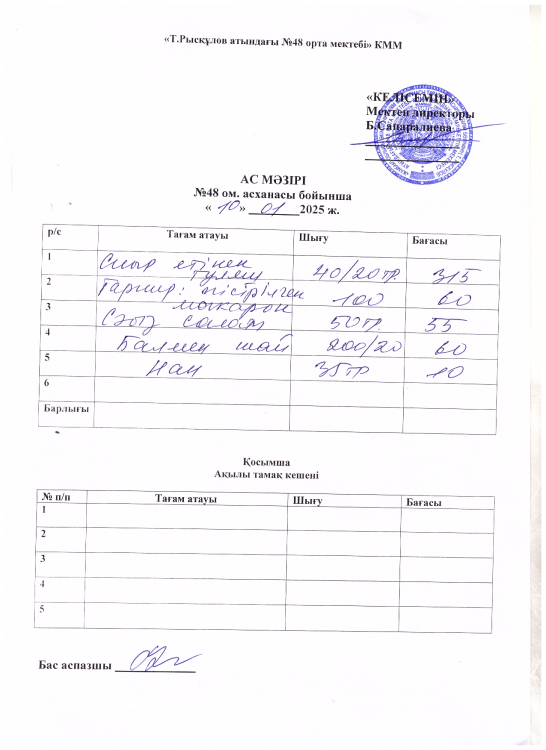 «Т.Рысқұлов атындағы №48 орта мектебі» КММ
«КЕЛІСЕМІН»
Мектеп директоры
Б.Сапаралиева
АС МӘЗІРІ
№48 ом. асханасы бойынша
« 10 » 01 2025 ж.
р/с Тағам атауы Шығу Бағасы
1 Сиыр етінен гуляш 40/20гр. 315
2 Гарнир: пісірілген макарон 100 60
3 Сәбіз салат 50гр. 55
4 Балмен шай 200/20 60
5 Нан 35гр 10
6
Барлығы
Қосымша
Ақылы тамақ кешені
№ п/п Тағам атауы Шығу Бағасы
1
2
3
4
5
Бас аспазшы